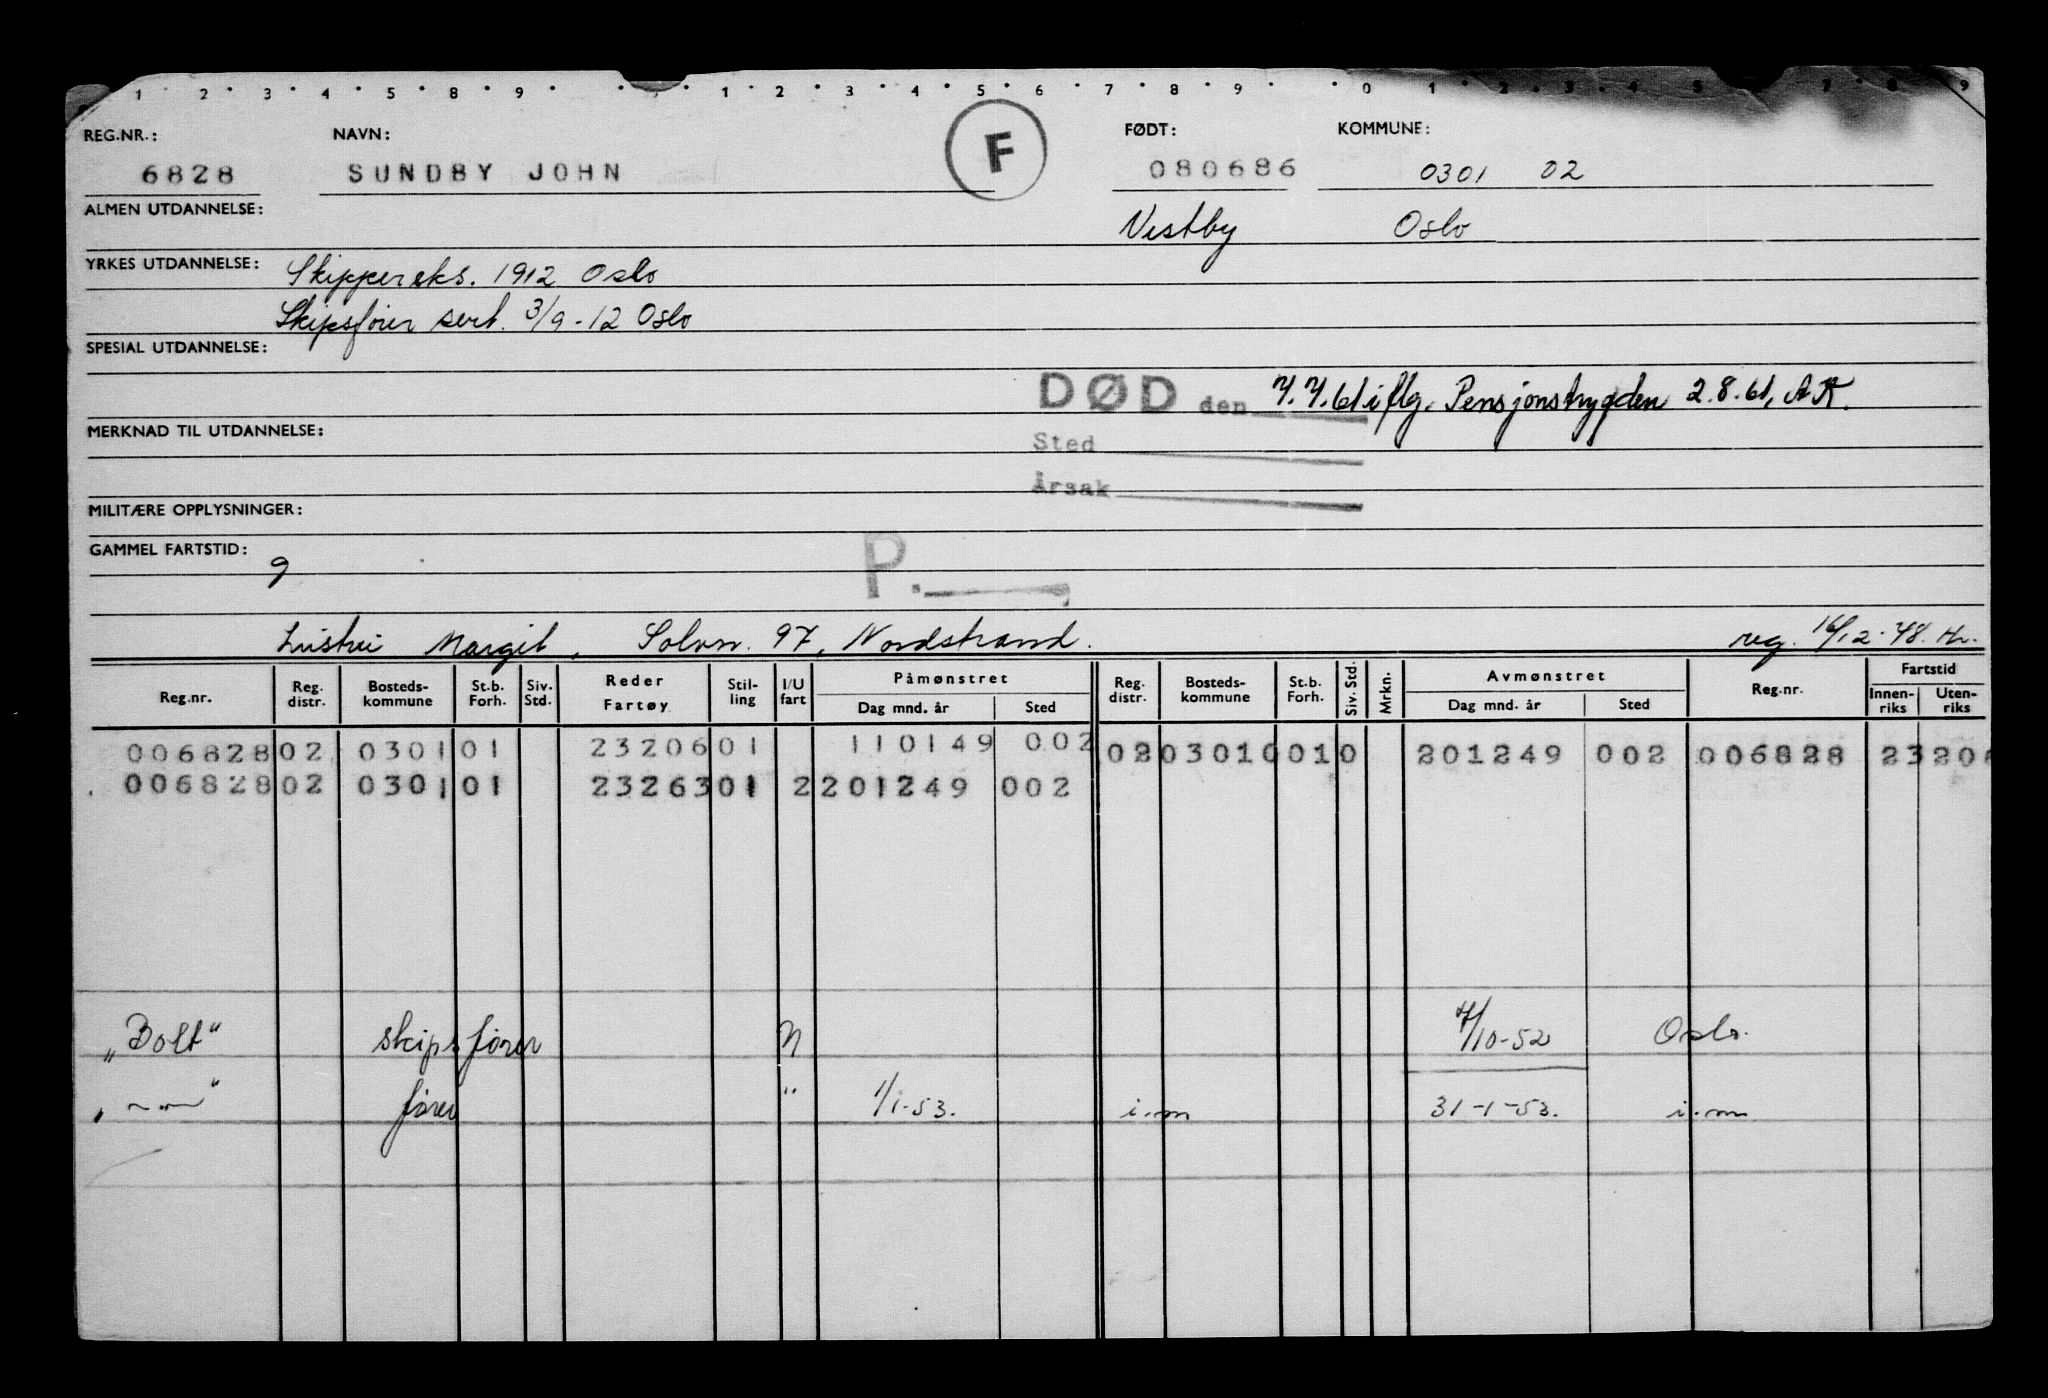 1 2 3 4 5 8 9 1 2 3 4 5 6 7 8 9 0 1 2 3 4 5 7 8 9
REG.NR.: NAVN: F FØDT: KOMMUNE:
6828 SUNDBY JOHN 080686 0301 02
ALMEN UTDANNELSE: Vestby Oslo
YRKES UTDANNELSE: Skippereks. 1912 Oslo
Skipsfører sert. 3/9-12 Oslo
SPESIAL UTDANNELSE:
DØD den 7.7.61 iflg. Pensjonstrygden 2.8.61, A.K.
MERKNAD TIL UTDANNELSE:
Sted
Årsak
MILITÆRE OPPLYSNINGER:
GAMMEL FARTSTID: 9
P.
Margit, Solvn. 97, Nordstrand. reg. 16/12-48. Hr.
Reg.nr. Reg. distr. Bosteds-kommune St.b. Forh. Siv. Std. Reder Fartøy Stil-ling I/U fart Påmønstret Dag mnd. år Sted Reg. distr. Bosteds-kommune St.b. Forh. Siv. Std. Mrkn. Avmønstret Dag mnd. år Sted Reg.nr. Fartstid Innen-riks Uten-riks
006828 02 0301 01 23206 01 110149 002 02 0301 0010 201249 002 006828 23 206
006828 02 0301 01 23263 01 2 201249 002
„Bolt" skipsfører N 7/10-52 Oslo.
„ —„— " fører " 1/1-53. i.m 31-1-53. i.m